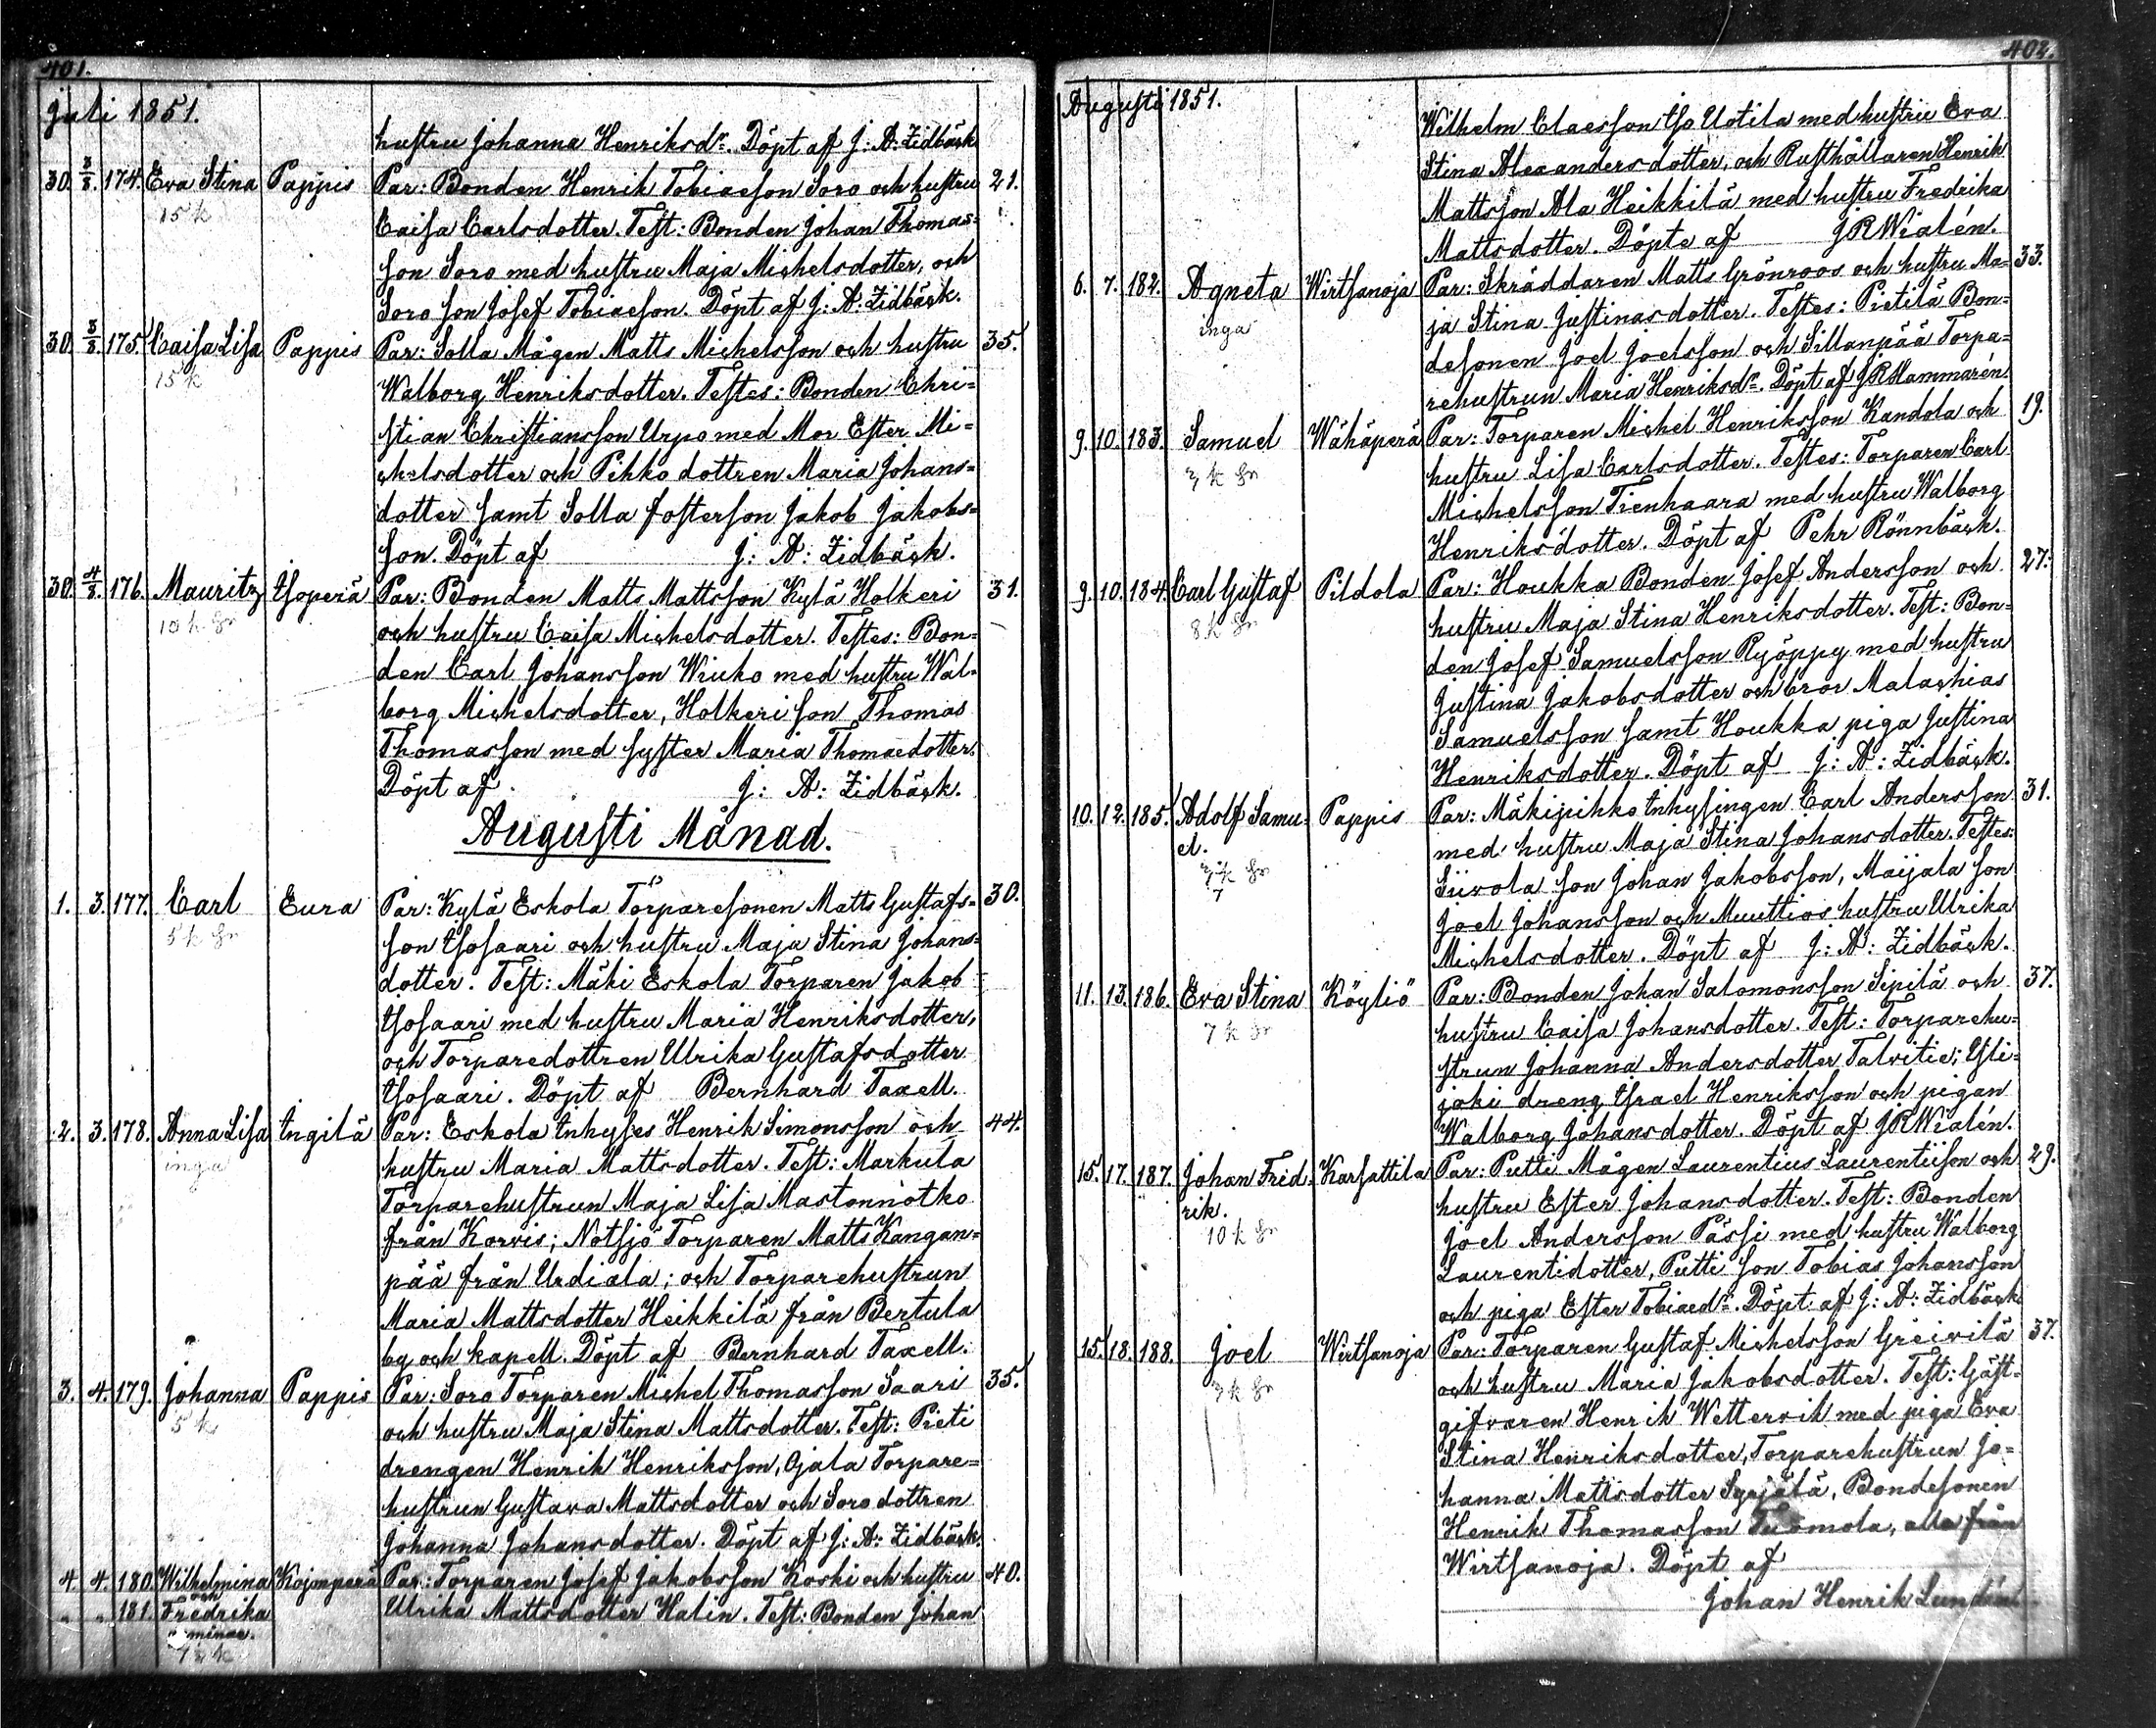 401.
Juli 1851.
huſtru Johanna Henriksdr. Döpt af J: A: Zidbäck
30. 3/8. 174. Eva Stina Pappis Par: Bonden Henrik Tobiaeſon Soro och huſtru 21.
15 k Caiſa Carlsdotter. Teſt: Bonden Johan Thomas=
ſon Soro med huſtru Maja Michelsdotter, och
Soro ſon Joſef Tobiaeſon. Döpt af J: A: Zidbäck.
30. 3/8 175. Caiſa Liſa Pappis Par: Solla Mågen Matts Michelsſon och huſtru 35.
15 k Walborg Henriksdotter. Teſtes: Bonden Chri=
ſtian Chriſtiansſon Urpo med Mor Eſter Mi=
chelsdotter och Pihko dottren Maria Johans=
dotter ſamt Solla foſterſon Jakob Jakobs=
ſon. Döpt af J: A: Zidbäck.
30. 4/8. 176. Mauritz Iſoperä Par: Bonden Matts Mattsſon Kylä Holkeri 31.
10 k Sr och huſtru Caiſa Michelsdotter. Teſtes: Bon=
den Carl Johansſon Wiuko med huſtru Wal=
borg Michelsdotter, Holkeri ſon Thomas
Thomasſon med ſyſter Maria Thomaedotter.
Döpt af J: A: Zidbäck.
Auguſti Månad.
1. 3. 177. Carl Eura Par: Kylä Eskola Torpareſonen Matts Guſtafs= 30.
5 k Sr ſon Iſoſaari och huſtru Maja Stina Johans=
dotter. Teſt: Mäki Eskola Torparen Jakob
Iſoſaari med huſtru Maria Henriksdotter,
och Torparedottren Ulrika Guſtafsdotter
Iſoſaari. Döpt af Bernhard Taxell.
2. 3. 178. Anna Liſa Ingilä Par: Eskola Inhyſes Henrik Simonsſon och 44.
inga huſtru Maria Mattsdotter. Teſt: Markula
Torparehuſtrun Maja Liſa Mastonnotko
från Korvis; Notſjö Torparen Matts Kangan=
pää från Urdiala; och Torparehuſtrun
Maria Mattsdotter Heikkilä från Bertula
by och kapell. Döpt af Bernhard Taxell.
3. 4. 179. Johanna Pappis Par: Soro Torparen Michel Thomasſon Saari 35.
5 k och huſtru Maja Stina Mattsdotter. Teſt: Pieti
drengen Henrik Henriksſon, Ojala Torpare=
huſtrun Guſtava Mattsdotter och Soro dottren
Johanna Johansdotter. Döpt af J: A: Zidbäck.
4. 4. 180. Wilhelmina Kojonperä Par: Torparen Joſef Jakobsſon Koski och huſtru 40.
och
" " 181. Fredrika Ulrika Mattsdotter Halin. Teſt: Bonden Johan
402.
Auguſti 1851.
Wilhelm Claesſon Iſo Uotila med huſtru Eva
Stina Alexandersdotter, och Ruſthållaren Henrik
Mattsſon Ala Heikkilä med huſtru Fredrika
Mattsdotter. Döpte af JRWialén.
6. 7. 182. Agneta Wirtſanoja Par: Skräddaren Matts Grönroos och huſtru Ma= 33.
inga ja Stina Juſtinasdotter. Teſtes: Pietilä Bon=
deſonen Joel Joelsſon och Sillanpää Torpa=
rehuſtrun Maria Henriksdr. Döpt af JRHammarén.
9. 10. 183. Samuel Wähäperä Par: Torparen Michel Henriksſon Kandola och 19.
3 k Sr huſtru Liſa Carlsdotter. Teſtes: Torparen Carl
Michelsſon Tienhaara med huſtru Walborg
Henriksdotter. Döpt af Pehr Rönnbäck.
9. 10. 184. Carl Guſtaf Pildola Par: Houkka Bonden Joſef Andersſon och 27.
8 k Sr huſtru Maja Stina Henriksdotter. Teſt: Bon=
den Joſef Samuelsſon Ryöppy med huſtru
Juſtina Jakobsdotter och bror Malachias
Samuelsſon ſamt Houkka piga Juſtina
Henriksdotter. Döpt af J: A: Zidbäck.
10. 12. 185. Adolf Samu= Pappis Par: Mäkipihko Inhyſingen Carl Andersſon 31.
el. med huſtru Maja Stina Johansdotter. Teſtes:
Siivola ſon Johan Jakobsſon, Maijala ſon
7 Joel Johansſon och Muuttios huſtru Ulrika
Michelsdotter. Döpt af J: A: Zidbäck.
11. 13. 186. Eva Stina Köyliö Par: Bonden Johan Salomonsſon Sipilä och 37.
7 k Sr huſtru Caiſa Johansdotter. Teſt: Torparehu=
ſtrun Johanna Andersdotter Talvitie; Yli=
joki dreng Iſrael Henriksſon och pigan
Walborg Johansdotter. Döpt af JRWialén.
15. 17. 187. Johan Fred= Karſattila Par: Putti Mågen Laurentius Laurentiiſon och 29.
rik. huſtru Eſter Johansdotter. Teſt: Bonden
10 k Sr Joel Andersſon Päsſi med huſtru Walborg
Laurentidotter, Putti ſon Tobias Johansſon
och piga Eſter Tobiaedr. Döpt af J: A: Zidbäck
15. 18. 188. Joel Wirtſanoja Par: Torparen Guſtaf Michelsſon Greivilä 37.
3 k Sr och huſtru Maria Jakobsdotter. Teſt: Gäſt=
gifvaren Henrik Wettervik med piga Eva
Stina Henriksdotter, Torparehuſtrun Jo=
hanna Mattsdotter Syrjälä, Bondeſonen
Henrik Thomasſon Tuomola, alla från
Wirtſanoja. Döpt af
Johan Henrik Lundén